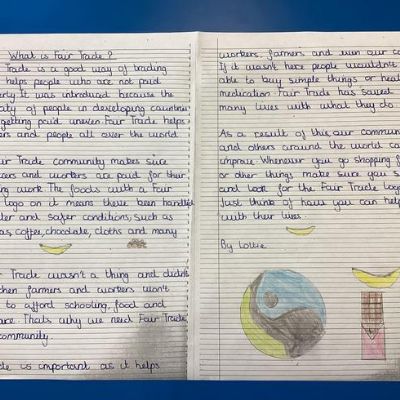 What is Fair Trade?
Trade is a good way of trading
helps people who are not paid
It was introduced because the
of people in developing countries
getting paid uneven Fair Trade helps
and people all over the world
Trade community makes sure
and workers are paid for their
work. The foods with a Fair
logo on it means these been handled
and safer conditions, such as
coffee, chocolate, cloths and many
Trade wasn't a thing and didn't
farmers and workers won't
to afford schooling, food and
Thats why we need Fair Trade
community.
is important as it helps
workers, farmers and even our
If it wasn't here people wouldn't
able to buy simple things or
medication Fair Trade has saved
many lives with what they do
As a result of this, our
and others around the world
improve. Whenever you go shopping
or other things make sure you
and look for the Fair Trade logo
Just think of how you can help
with their lives.
By Lottie